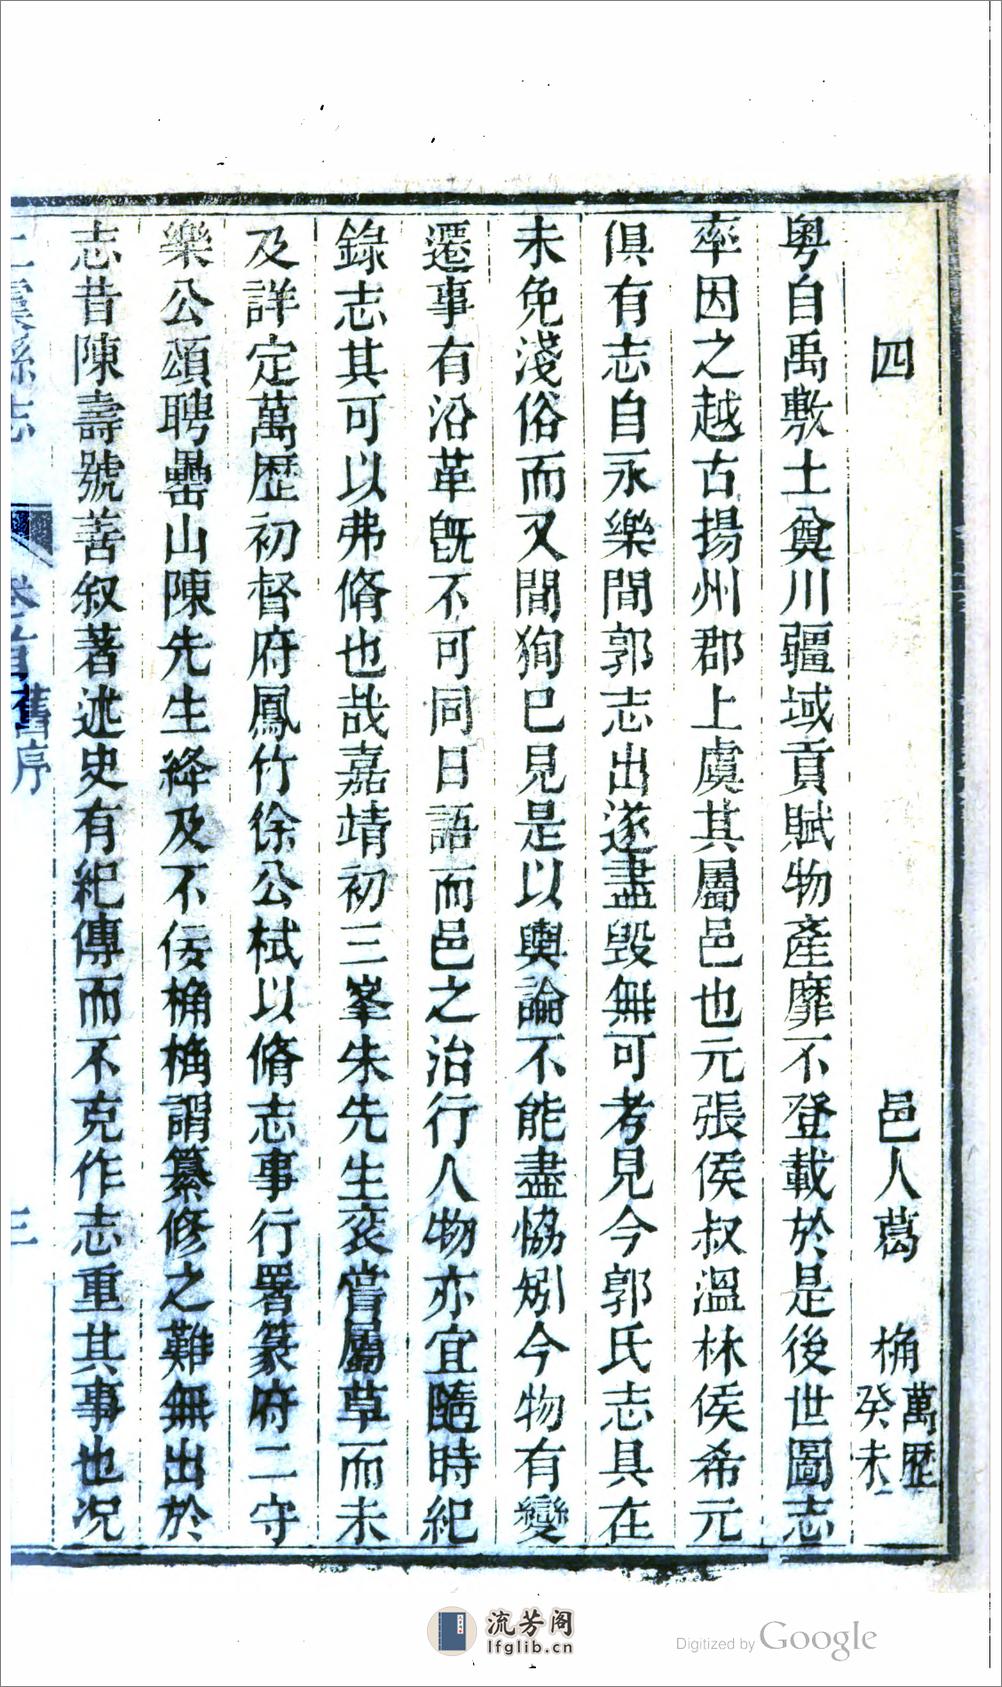 四 邑人葛桷萬歷癸未
粵自禹敷土奠川疆域貢賦物產靡不登載於是後世圖志
率因之越古揚州郡上虞其屬邑也元張侯叔溫林侯希元
俱有志自永樂間郭志出遂盡毀無可考見今郭氏志具在
未免淺俗而又間狥已見是以輿論不能盡恊矧今物有變
遷事有沿革旣不可同日語而邑之治行人物亦宜隨時紀
錄志其可以弗脩也哉嘉靖初三峯朱先生袞嘗屬草而未
及詳定萬歷初督府鳳竹徐公栻以脩志事行署篆府二守
樂公頌聘罍山陳先生絳及不佞桷桷謂纂修之難無出於
志昔陳壽號善叙著述史有紀傳而不克作志重其事也况
上虞縣志 卷首 舊序 三
流芳阁
lfglib.cn
Digitized by Google